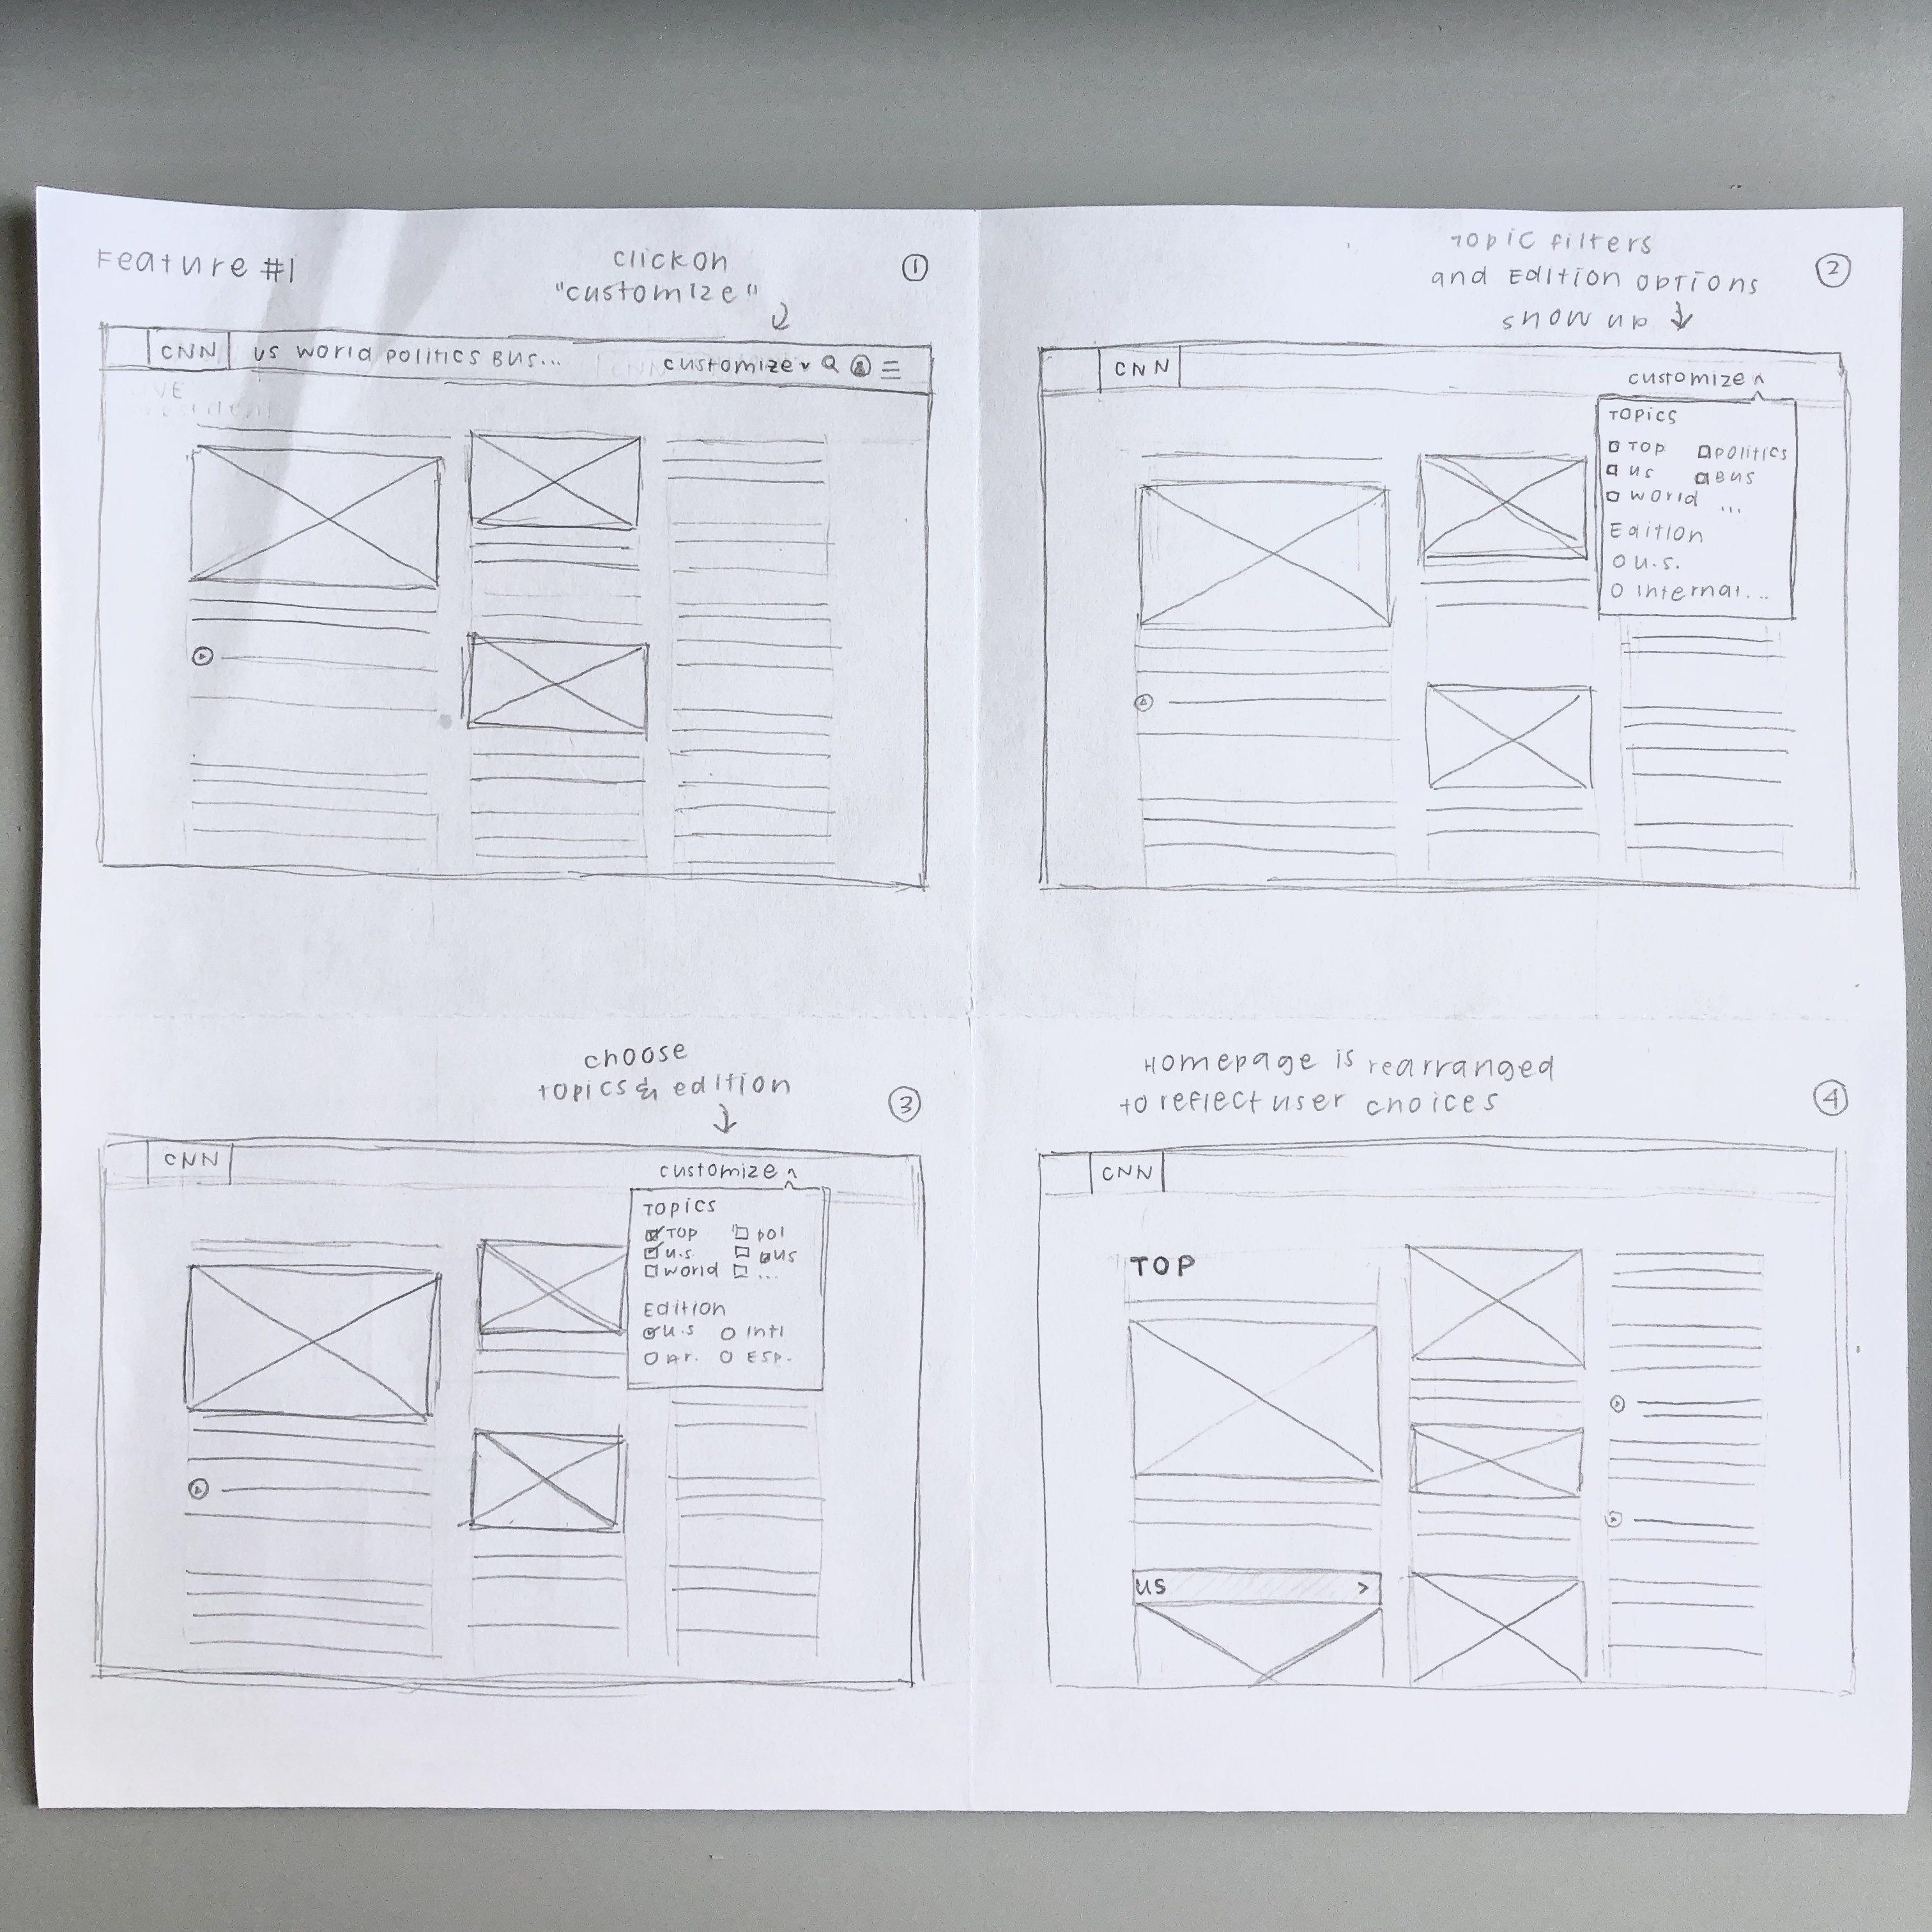 Feature #1
click on
"customize"
1
CNN
us world politics Bus...
customize
topic filters
and Edition options
show up
2
CNN
customize
Topics
Top
politics
us
Bus
world
...
Edition
u.s.
Internat...
choose
topics & edition
3
CNN
customize
Topics
Top
pol
u.s
Bus
world
...
Edition
u.s
Intl
Ar.
Esp.
Homepage is rearranged
to reflect user choices
4
CNN
TOP
US
>